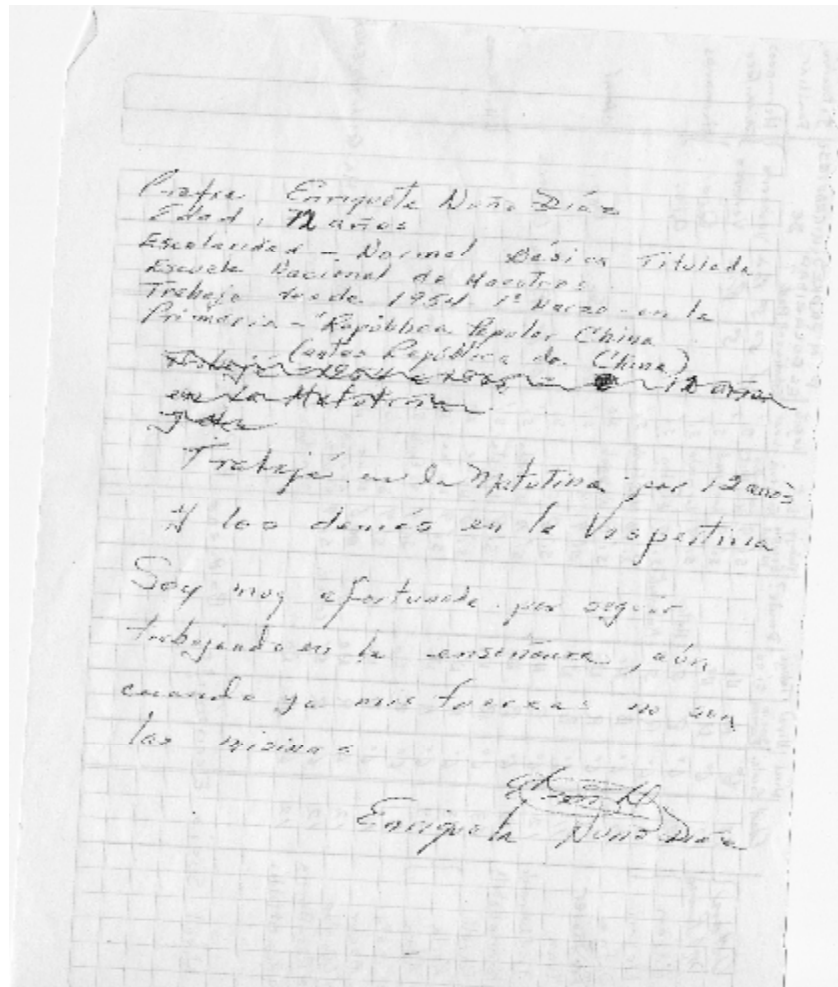 Profra Enriqueta Nuño Díaz
Edad: 72 años
Escolaridad - Normal Básica Titulada
Escuela Nacional de Maestros
Trabajo desde 1954 1º Marzo - en la
Primaria - "República Popular China
(antes República de China)
Trabajé 1954 a 12 años
en la Matutina
y la
Trabajé en la Matutina por 12 años
Y los demás en la Vespertina
Soy muy afortunada por seguir
trabajando en la enseñanza, aún
cuando ya mis fuerzas no son
las mismas
Enriqueta Nuño Díaz